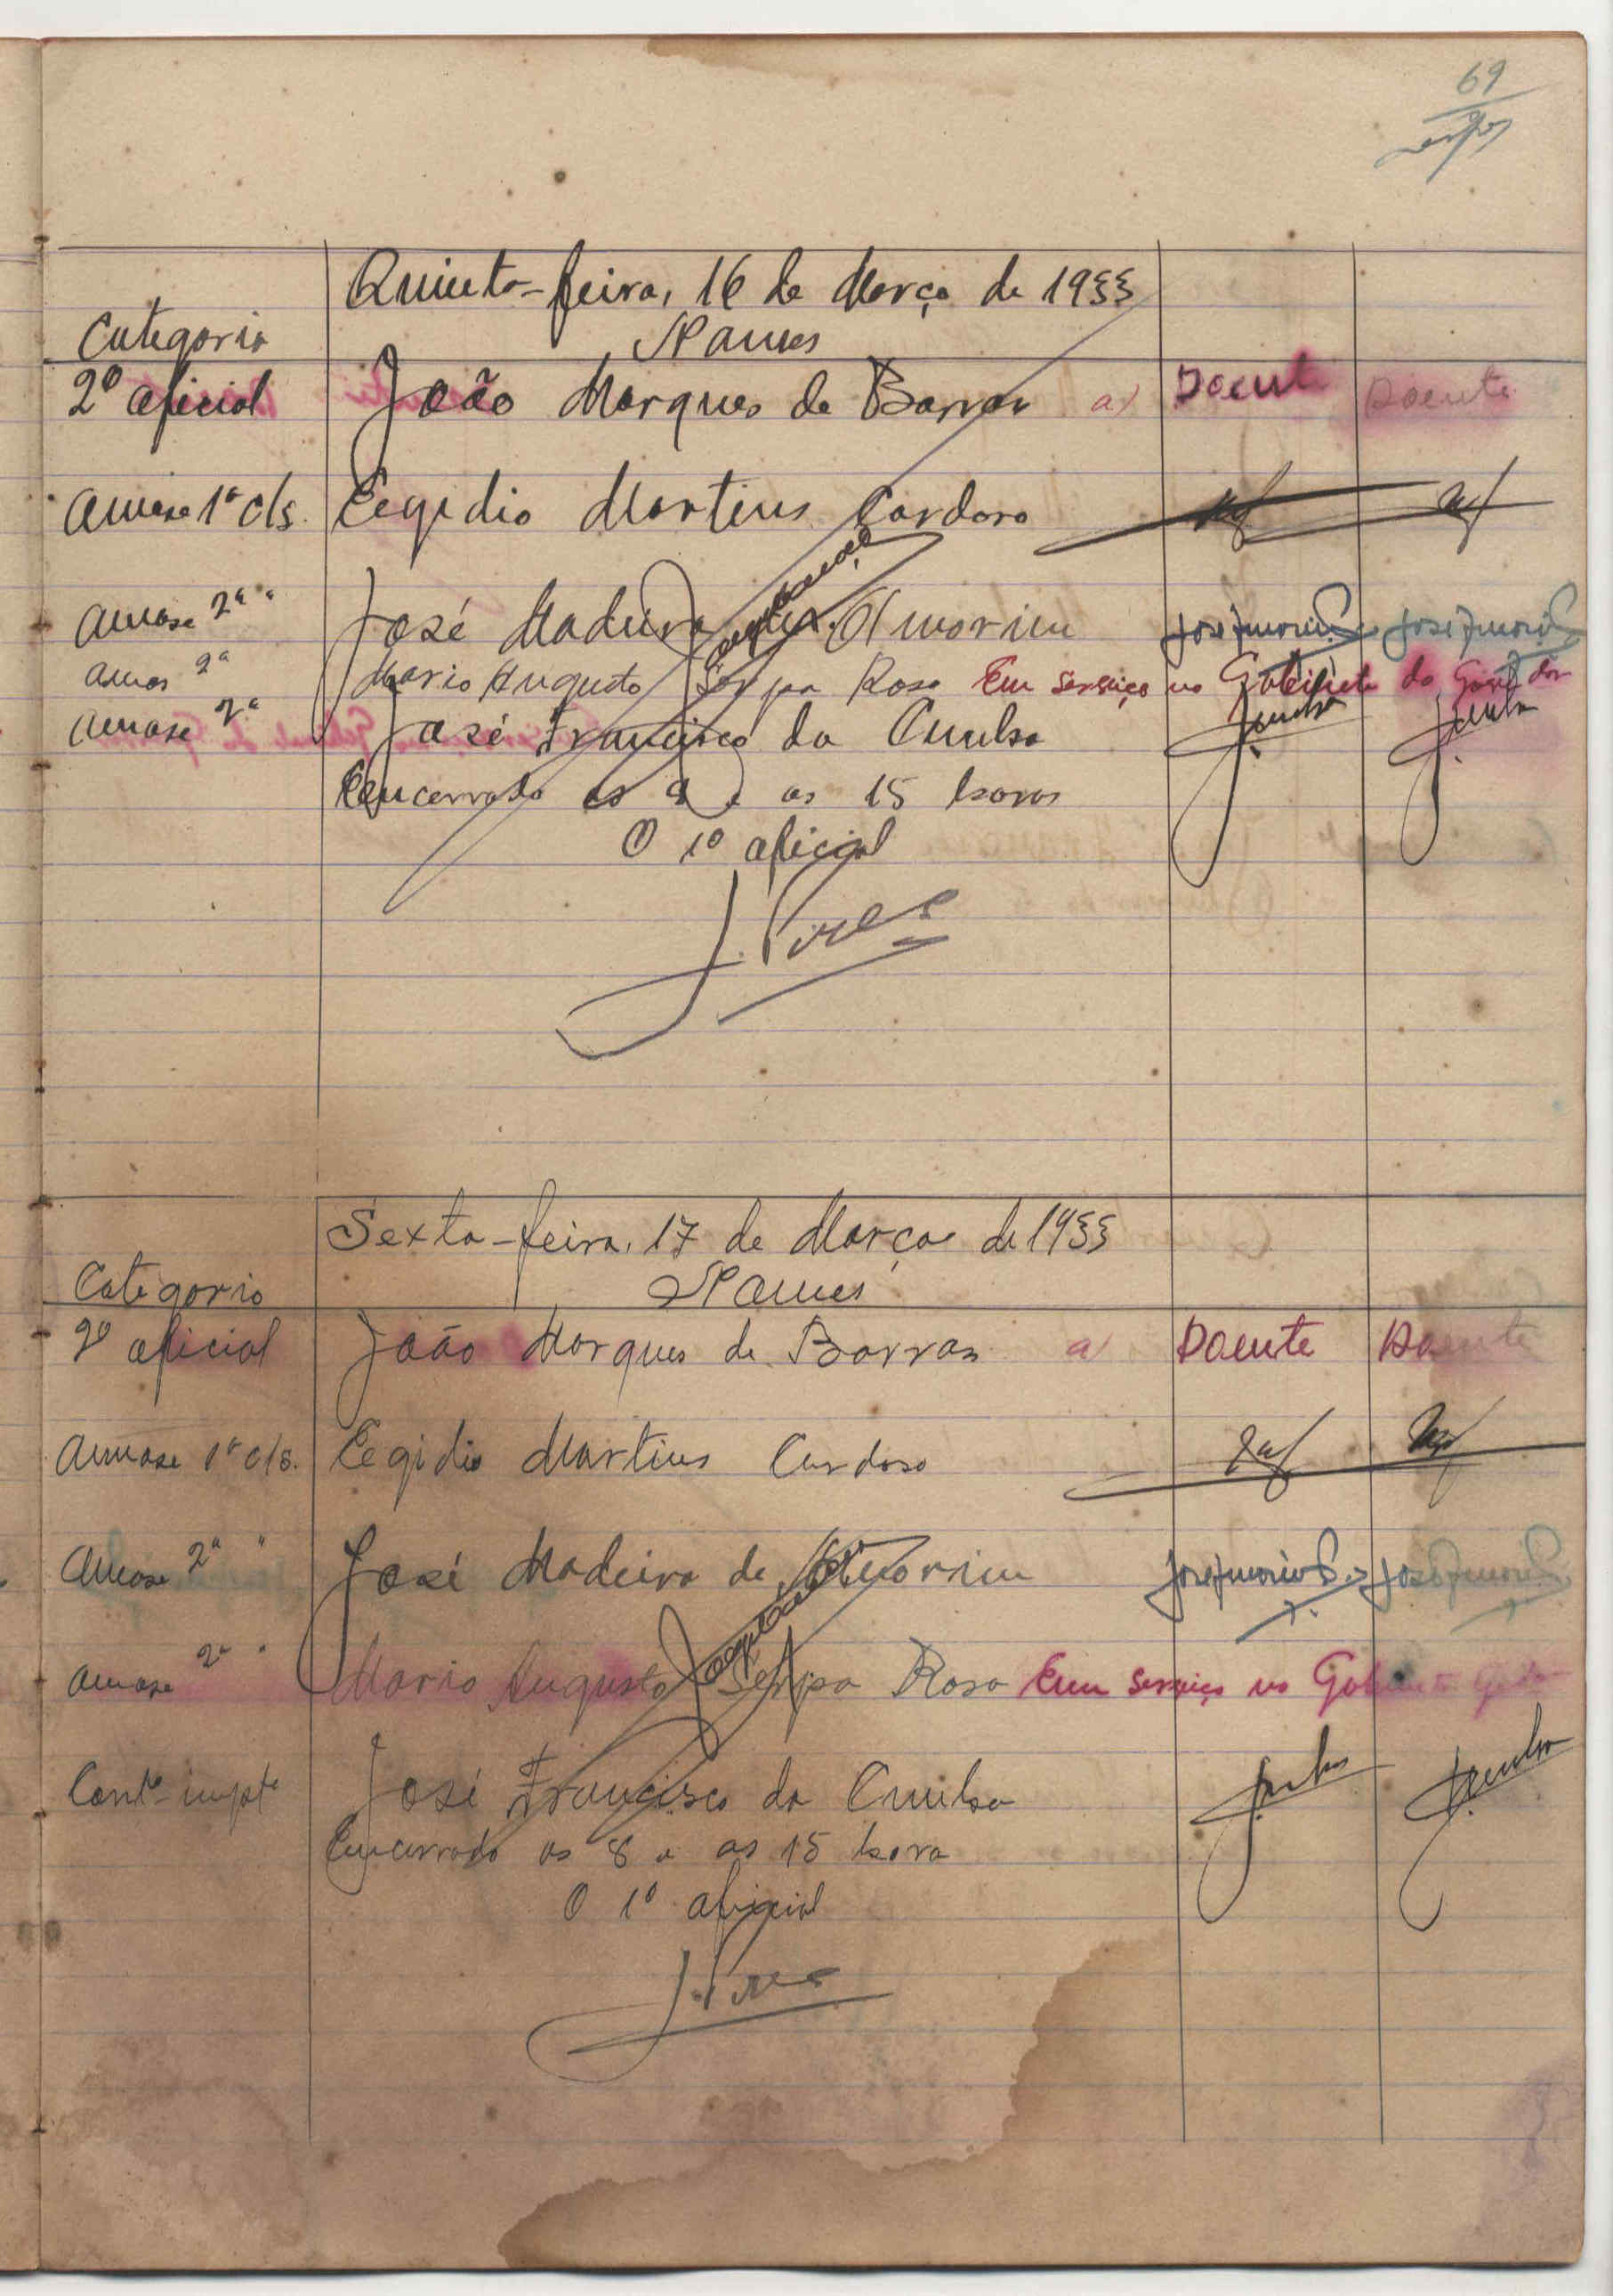 69
Quinta-feira, 16 de Março de 1933
Categoria Nomes
2º oficial João Marques de Barros a) Doente Doente
Amase 1ª cls. Eegidio Martins Cardoso
Amase 2ª " José Madeira Amorim José Amorim José Amorim
Amas 2ª Mario Augusto Serpa Rosa Em serviço no Gabinete do
Amase 2ª José Francisco da Cunha JCunha JCunha
Encerrado as 8 e as 15 horas
O 1º oficial
J. Pires
Sexta-feira, 17 de Março de 1933
Categoria Nomes
2º oficial João Marques de Barros a) Doente Doente
Amase 1ª cls. Eegidio Martins Cardoso
Amase 2ª " José Madeira de Amorim José Amorim José Amorim
Amase 2ª " Mario Augusto Serpa Rosa Em serviço no Gabinete
Contº impte José Francisco da Cunha JCunha JCunha
Encerrado as 8 e as 15 hora
O 1º oficial
J. Pires